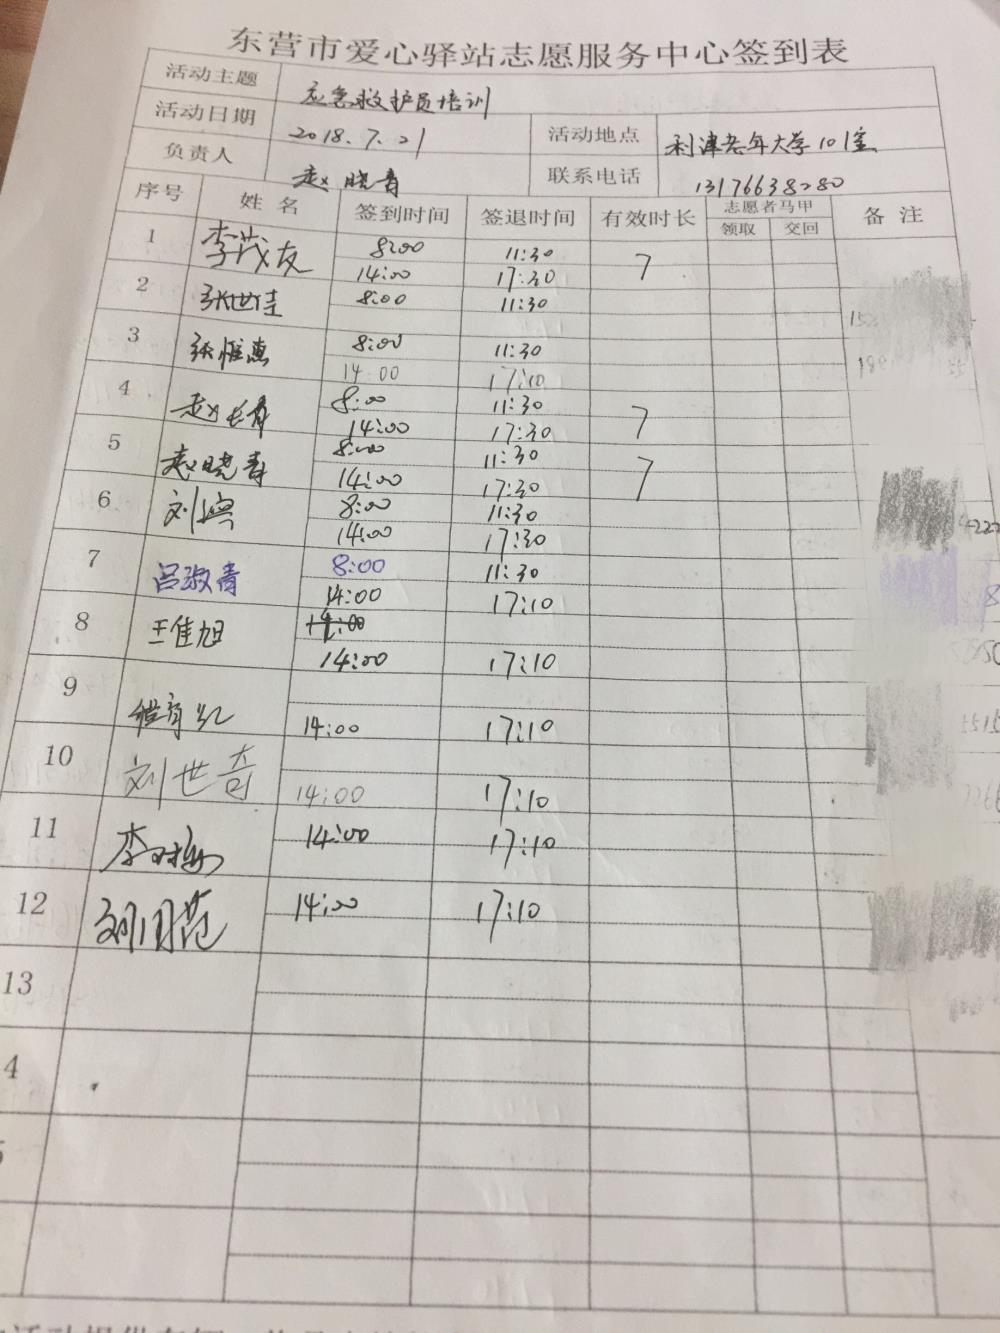 东营市爱心驿站志愿服务中心签到表
活动主题 应急救护员培训
活动日期 2018.7.21 活动地点 利津老年大学101室
负责人 赵晓青 联系电话 13176638280
序号 姓名 签到时间 签退时间 有效时长 志愿者马甲 备注
领取 交回
1 李茂友 8:00 11:30 7
14:00 17:30
2 张世佳 8:00 11:30
3 张惟惠 8:00 11:30
14:00 17:10
4 赵长青 8:00 11:30 7
14:00 17:30
5 赵晓青 8:00 11:30 7
14:00 17:30
6 刘 8:00 11:30
14:00 17:30
7 吕淑青 8:00 11:30
14:00 17:10
8 王佳旭
14:00 17:10
9
14:00 17:10
10 刘世奇
14:00 17:10
11 李 14:00 17:10
12 14:00 17:10
13
4